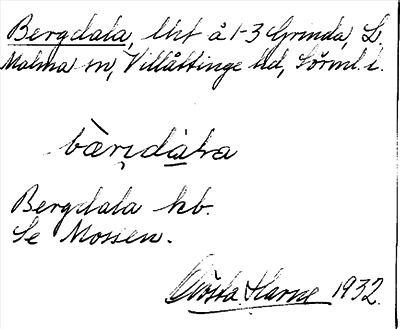 Bergdala, lht å 1-3 Grinda, L.
Malma sn, Villåttinge hd, Sörml. l.
bær̩dàƚa
Bergdala hb.
Se Mossen.
Gösta Harne 1932.